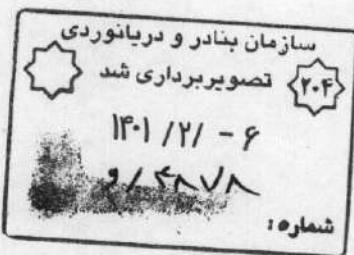 سازمان بنادر و دریانوردی
تصویربرداری شد
۲۰۴
۱۴۰۱ /۲/ - ۶
۴۸۷۸ / و
شماره :